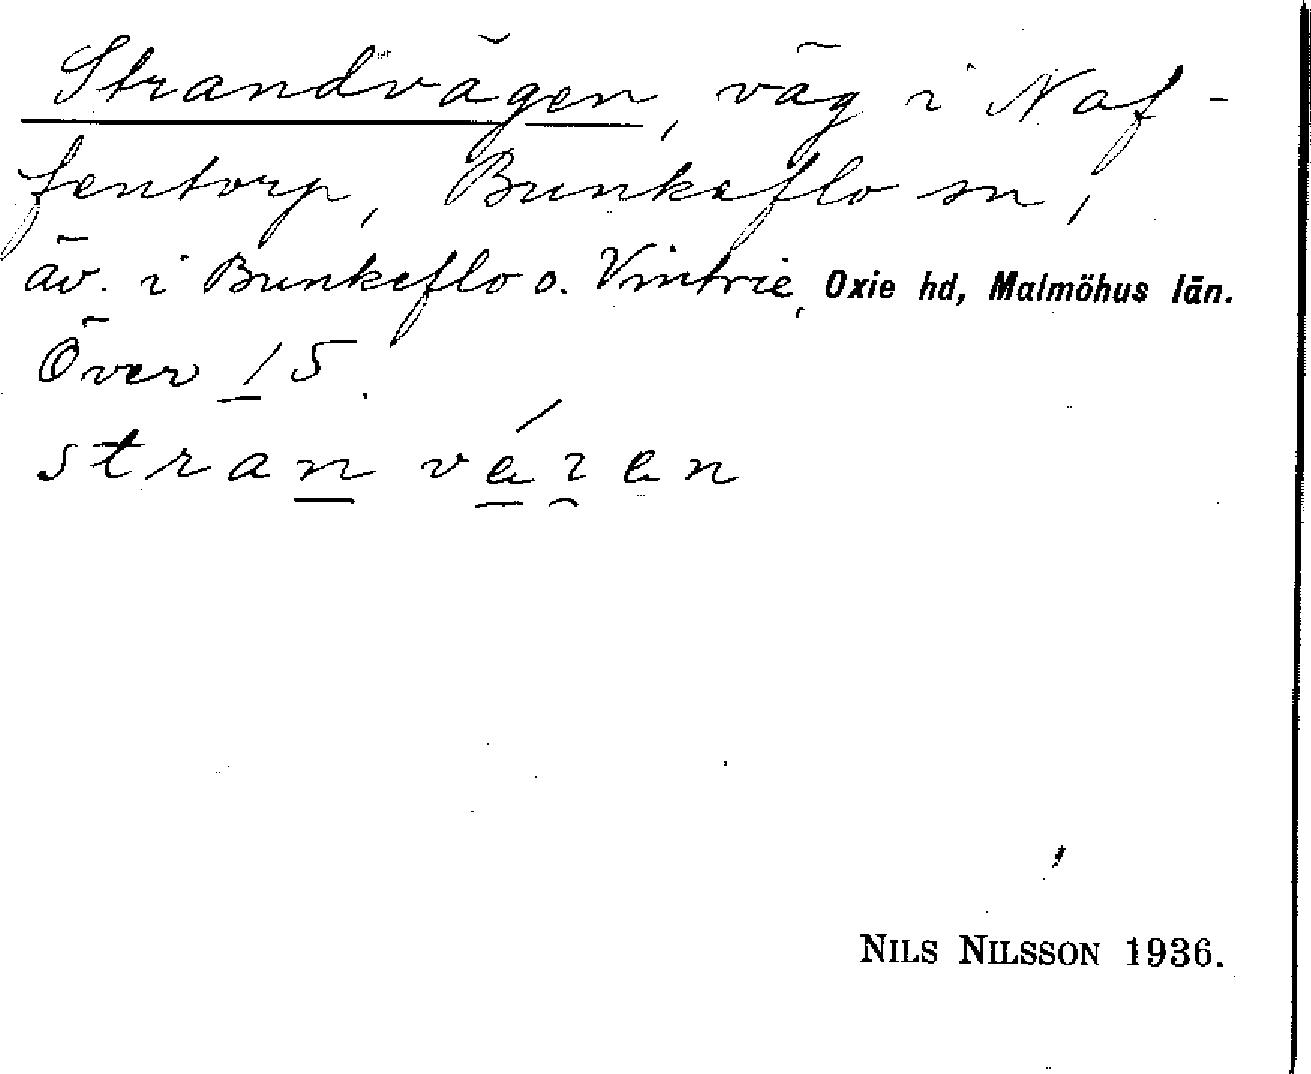 Strandvägen, väg i Naf-
fentorp, Bunkeflo sn,
äv. i Bunkeflo o. Vintrie, Oxie hd, Malmöhus län.
Över 15.
stran
NILS NILSSON 1936.